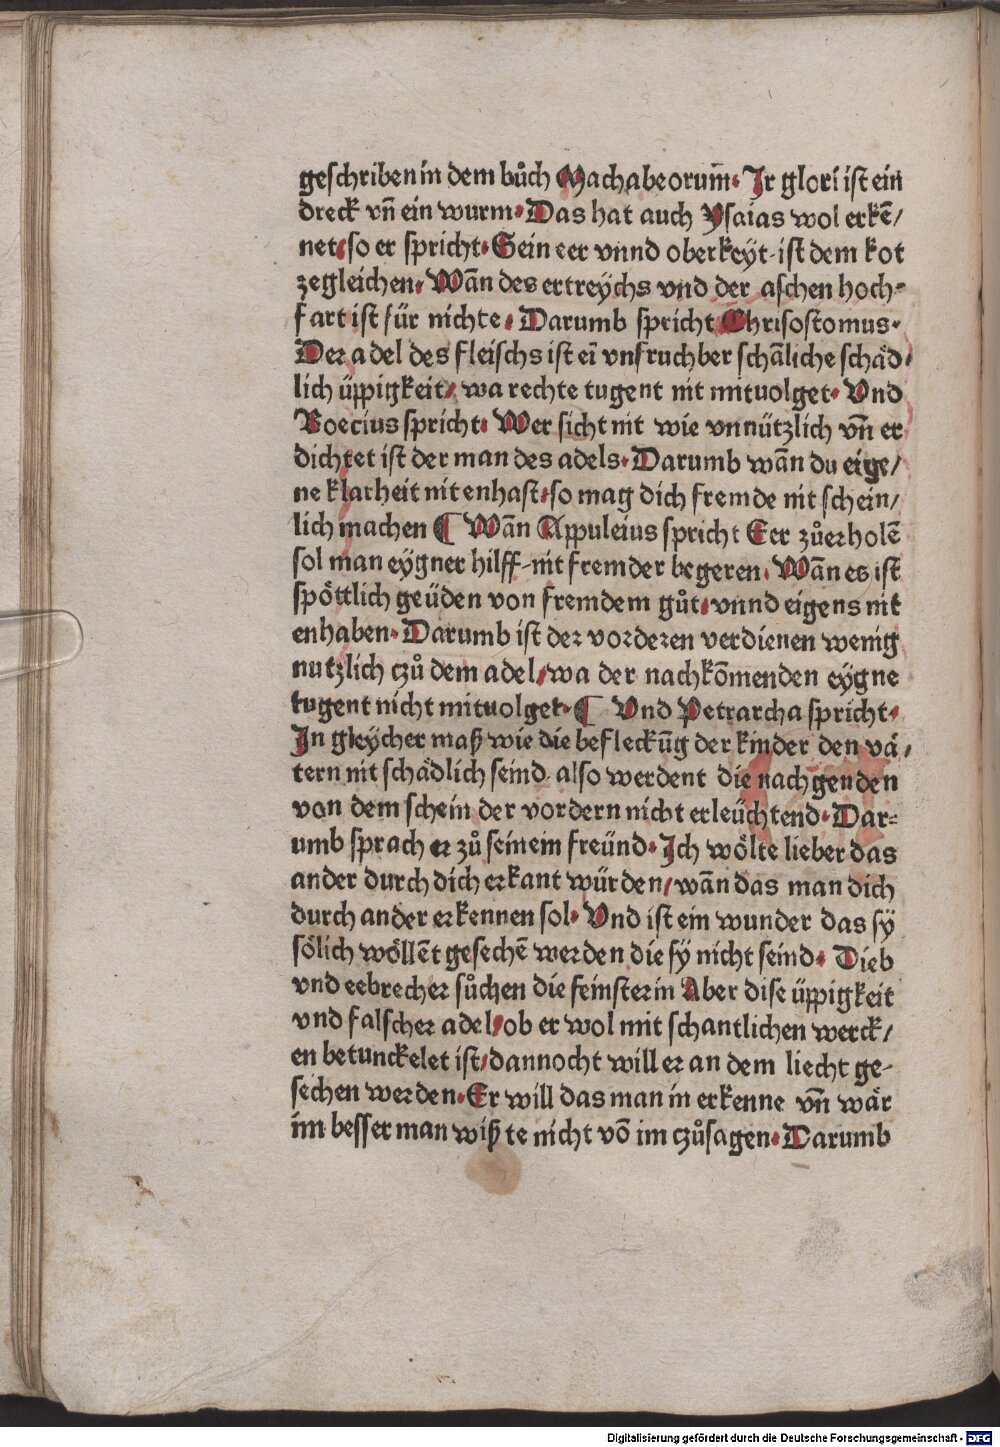 geschriben in dem bůch Machabeorum̄. Jr glori ist ein
dreck vn̄ ein wurm. Das hat auch Ysaias wol erkē/
net/ so er spricht. Sein eer vnnd oberkeyt. ist dem kot
zegleichen. Wān des ertreychs vnd der aschen hoch-
fart ist für nichte. Darumb spricht Chrisostomus.
Der adel des fleischs ist eī vnfruchber schāliche schäd/
lich üppigkeit/ wa rechte tugent nit mituolget. Vnd
Boecius spricht. Wer sicht nit wie vnnützlich vn̄ er
dichtet ist der man des adels. Darumb wān du eige/
ne klarheit nit enhast. so mag dich fremde nit schein/
lich machen ¶ Wān Appuleius spricht Eer zůerholē
sol man eygner hilff-nit fremder begeren. Wān es ist
spöttlich geüden von fremdem gůt/ vnnd eigens nit
enhaben. Darumb ist der vorderen verdienen wenig
nutzlich czů dem adel/ wa der nachkōmenden eygne
tugent nicht mituolget. ¶ Vnd Petrarcha spricht.
Jn gleycher maß wie die befleckūg der kinder den vä/
tern nit schädlich seind. also werdent die nachgenden
von dem schein der vordern nicht erleüchtend. Dar=
umb sprach er zů seinem freünd. Jch wölte lieber das
ander durch dich erkant würden/ wān das man dich
durch ander erkennen sol. Vnd ist ein wunder das sy
sölich wöllēt gesechē werden die sy nicht seind. Dieb
vnd eebrecher sůchen die feinsterin Aber dise üppigkeit
vnd falscher adel/ ob er wol mit schantlichen werck/
en betunckelet ist/ dannocht will er an dem liecht ge-
sechen werden. Er will das man in erkenne vn̄ wär
im besser man wißte nicht vō im czůsagen. Darumb
Digitalisierung gefördert durch die Deutsche Forschungsgemeinschaft - DFG